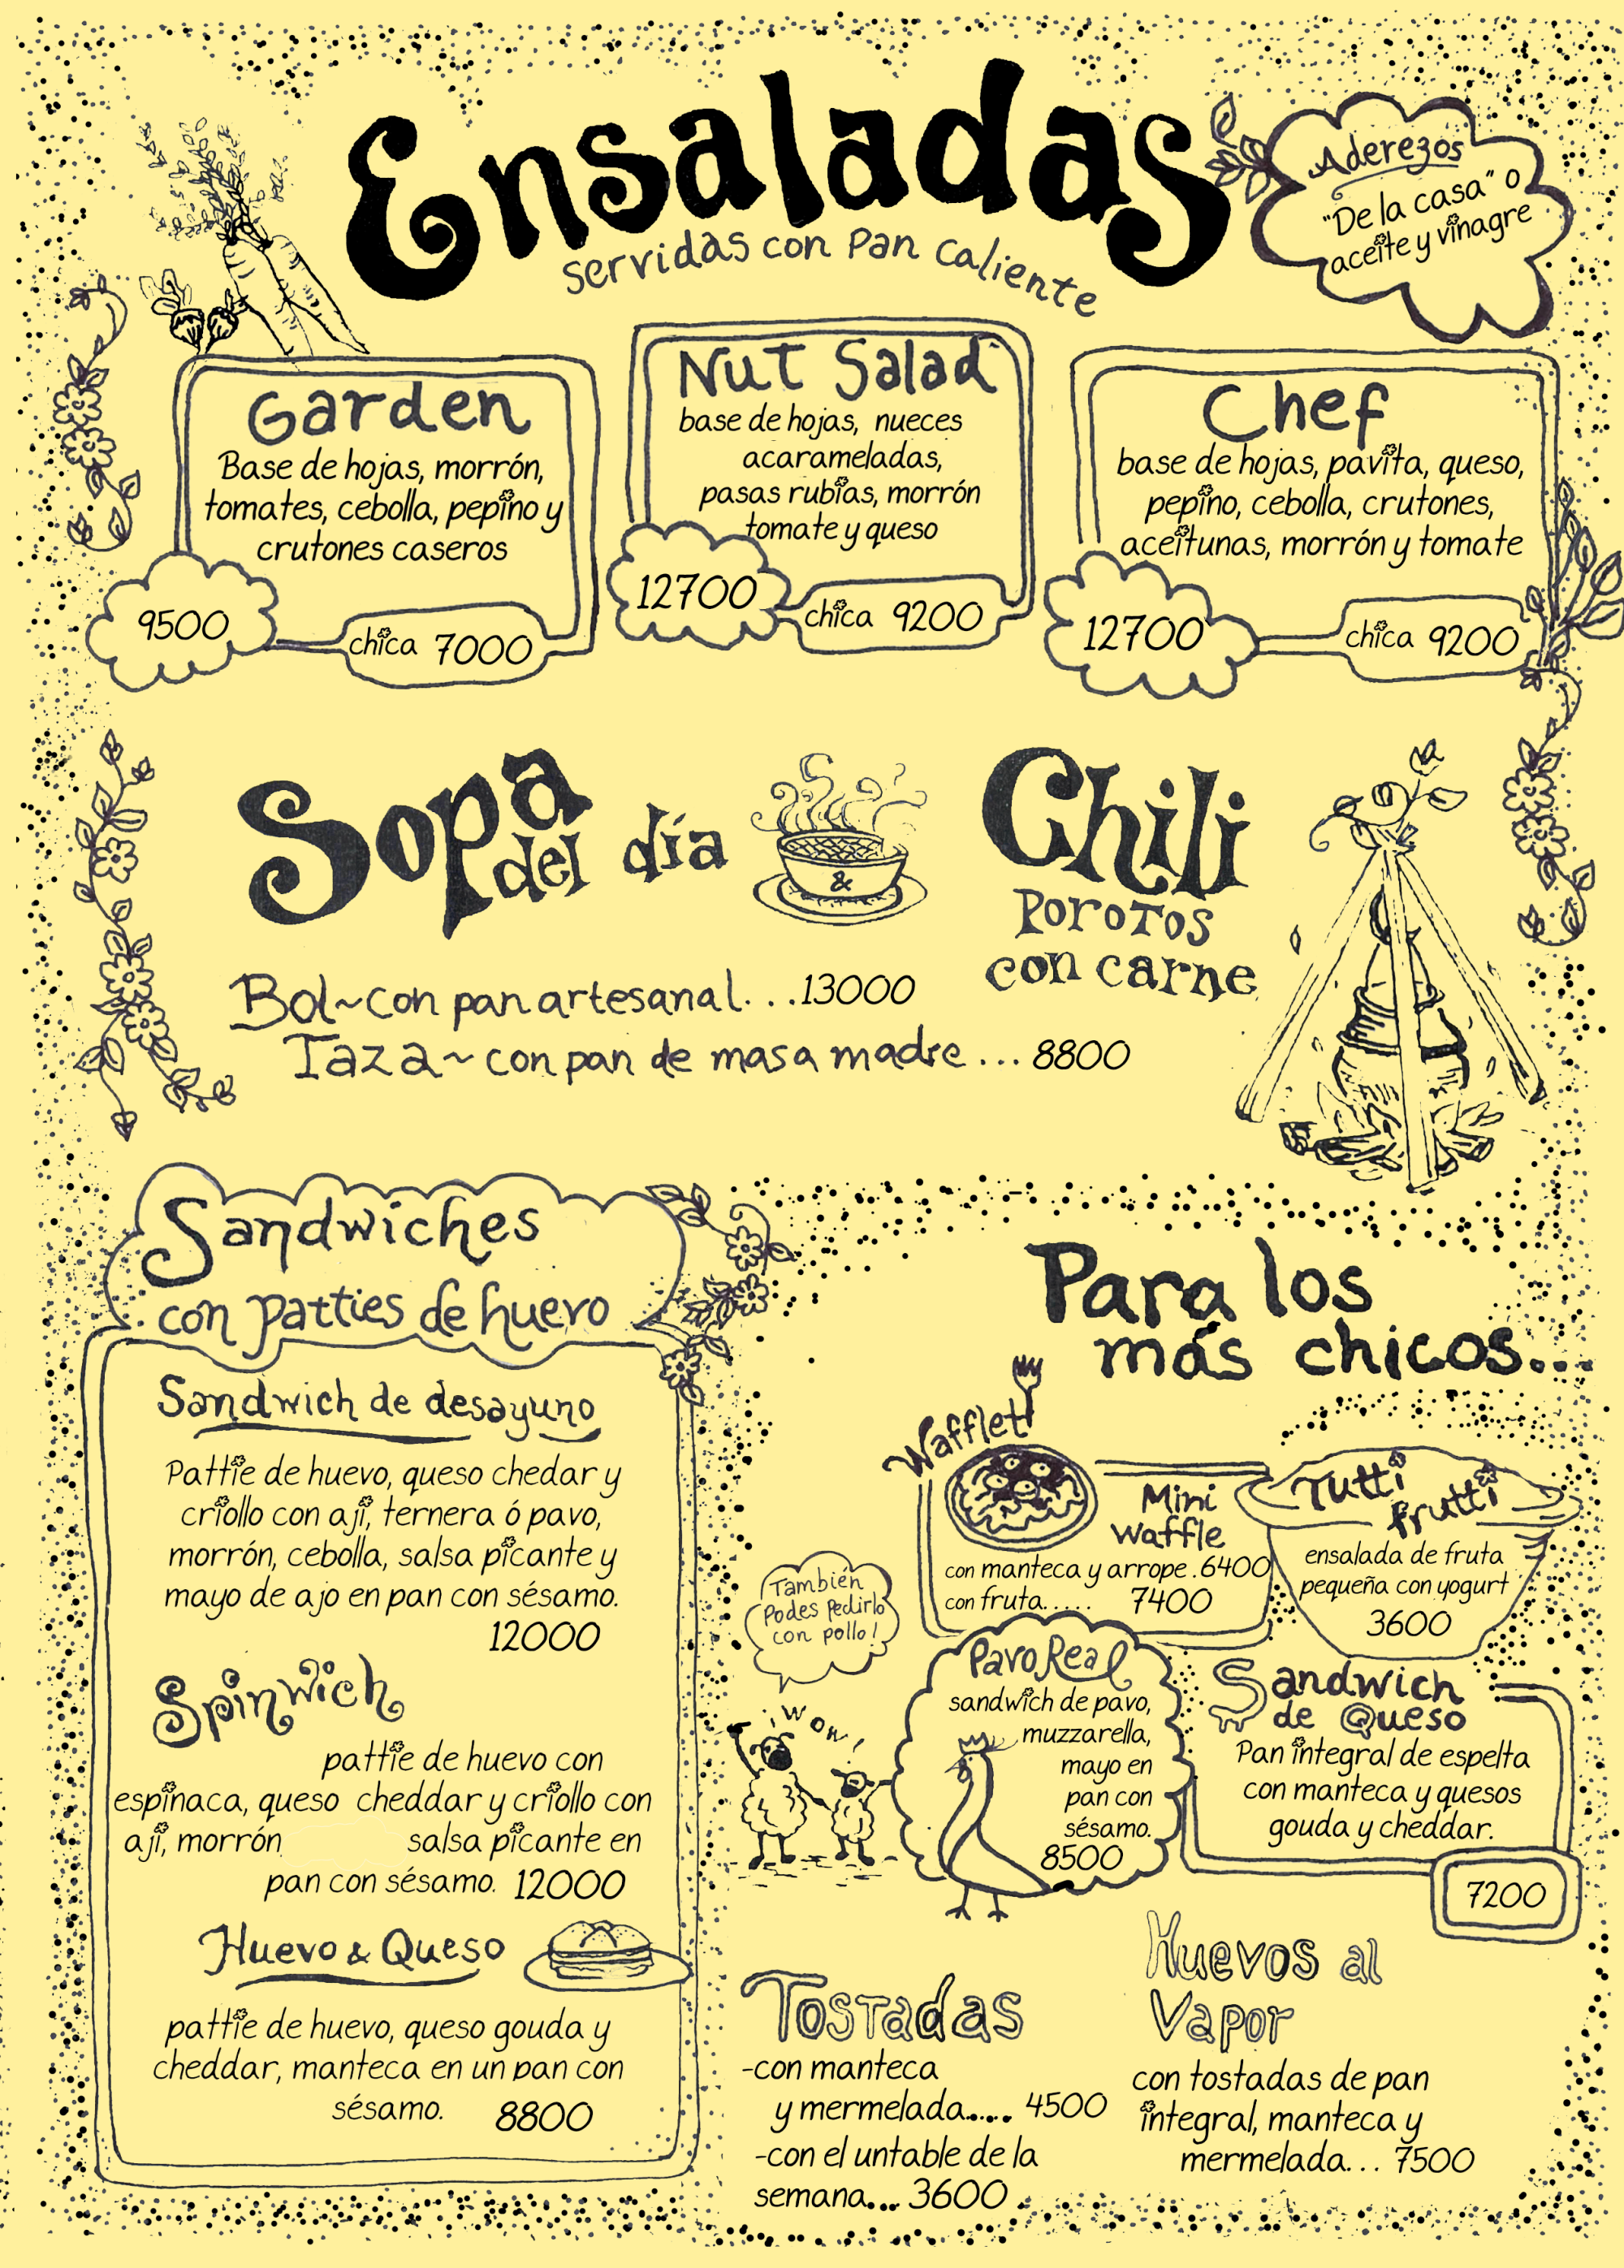 Ensaladas
servidas con Pan Caliente
Aderezos
"De la casa" o
aceite y vinagre
Garden
Base de hojas, morrón,
tomates, cebolla, pepino y
crutones caseros
9500
chica 7000
Nut Salad
base de hojas, nueces
acarameladas,
pasas rubias, morrón
tomate y queso
12700
chica 9200
Chef
base de hojas, pavita, queso,
pepino, cebolla, crutones,
aceitunas, morrón y tomate
12700
chica 9200
Sopa
del día
&
Chili
Porotos
con carne
Bol~con pan artesanal. . .13000
Taza~con pan de masa madre ... 8800
Sandwiches
con patties de huevo
Sandwich de desayuno
Pattie de huevo, queso chedar y
criollo con ají, ternera ó pavo,
morrón, cebolla, salsa picante y
mayo de ajo en pan con sésamo.
12000
Spinwich
pattie de huevo con
espinaca, queso cheddar y criollo con
ají, morrón salsa picante en
pan con sésamo. 12000
Huevo & Queso
pattie de huevo, queso gouda y
cheddar, manteca en un pan con
sésamo. 8800
Para los
más chicos...
Wafflet
Mini
waffle
con manteca y arrope .6400
con fruta..... 7400
Tutti
frutti
ensalada de fruta
pequeña con yogurt
3600
También
Podes Pedirlo
con pollo!
¡Wow!
Pavo Real
sandwich de pavo,
muzzarella,
mayo en
pan con
sésamo.
8500
Sandwich
de Queso
Pan integral de espelta
con manteca y quesos
gouda y cheddar.
7200
Tostadas
-con manteca
y mermelada...... 4500
-con el untable de la
semana... 3600
Huevos al
Vapor
con tostadas de pan
integral, manteca y
mermelada... 7500